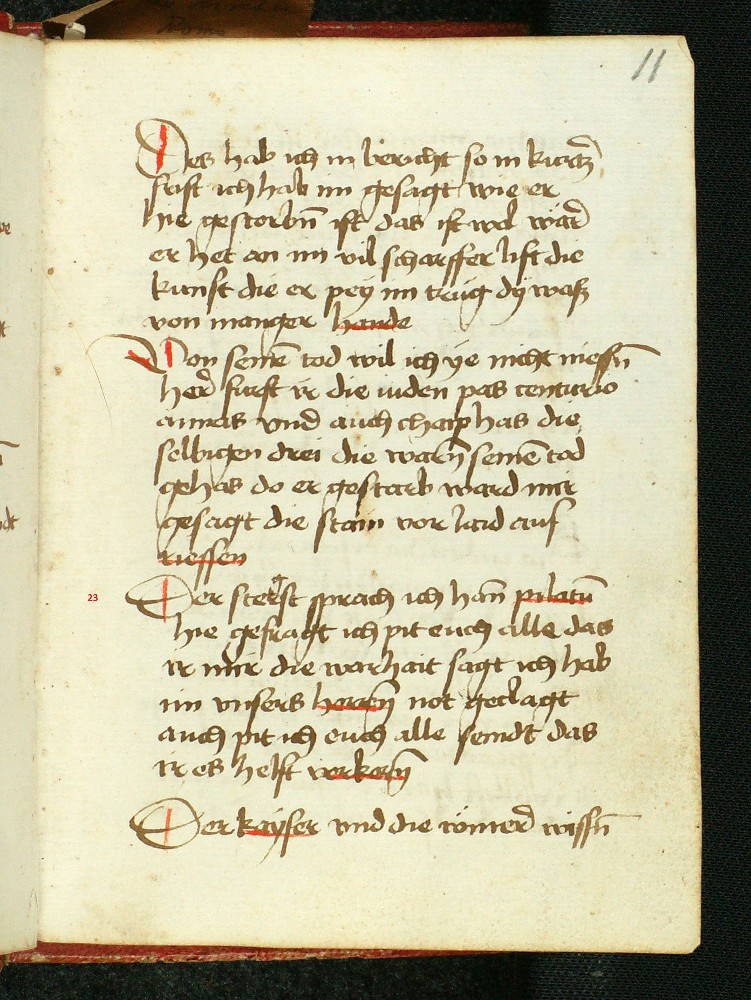 11
Des hab ich in bericht so in kurtz̄
frist ich hab im gesagt wie er
hie gestorbn̄ ist das ist wol war
er het an im vil scharffer list die
kunst die er pey im trug dy wasz
von manger hande
Von seinē tod wil ich ye nicht niessn̄
her̄ furst ir die iuden pas centurio
annas vnd auch chaiphas die
selbigen drei die warn̄ seinē tod
gehas do er gestarb ward mir
gesagt die stain vor laid auf
riessen
23 Der sterst sprach ich han̄ pilatū
hie gefragt ich pit euch alle das
ir mir die warhait sagt ich hab
im vnsers herren̄ not geclagt
auch pit ich euch alle seindt das
ir es helft verkern̄
Der kayser vnd die römer̄ wissn̄